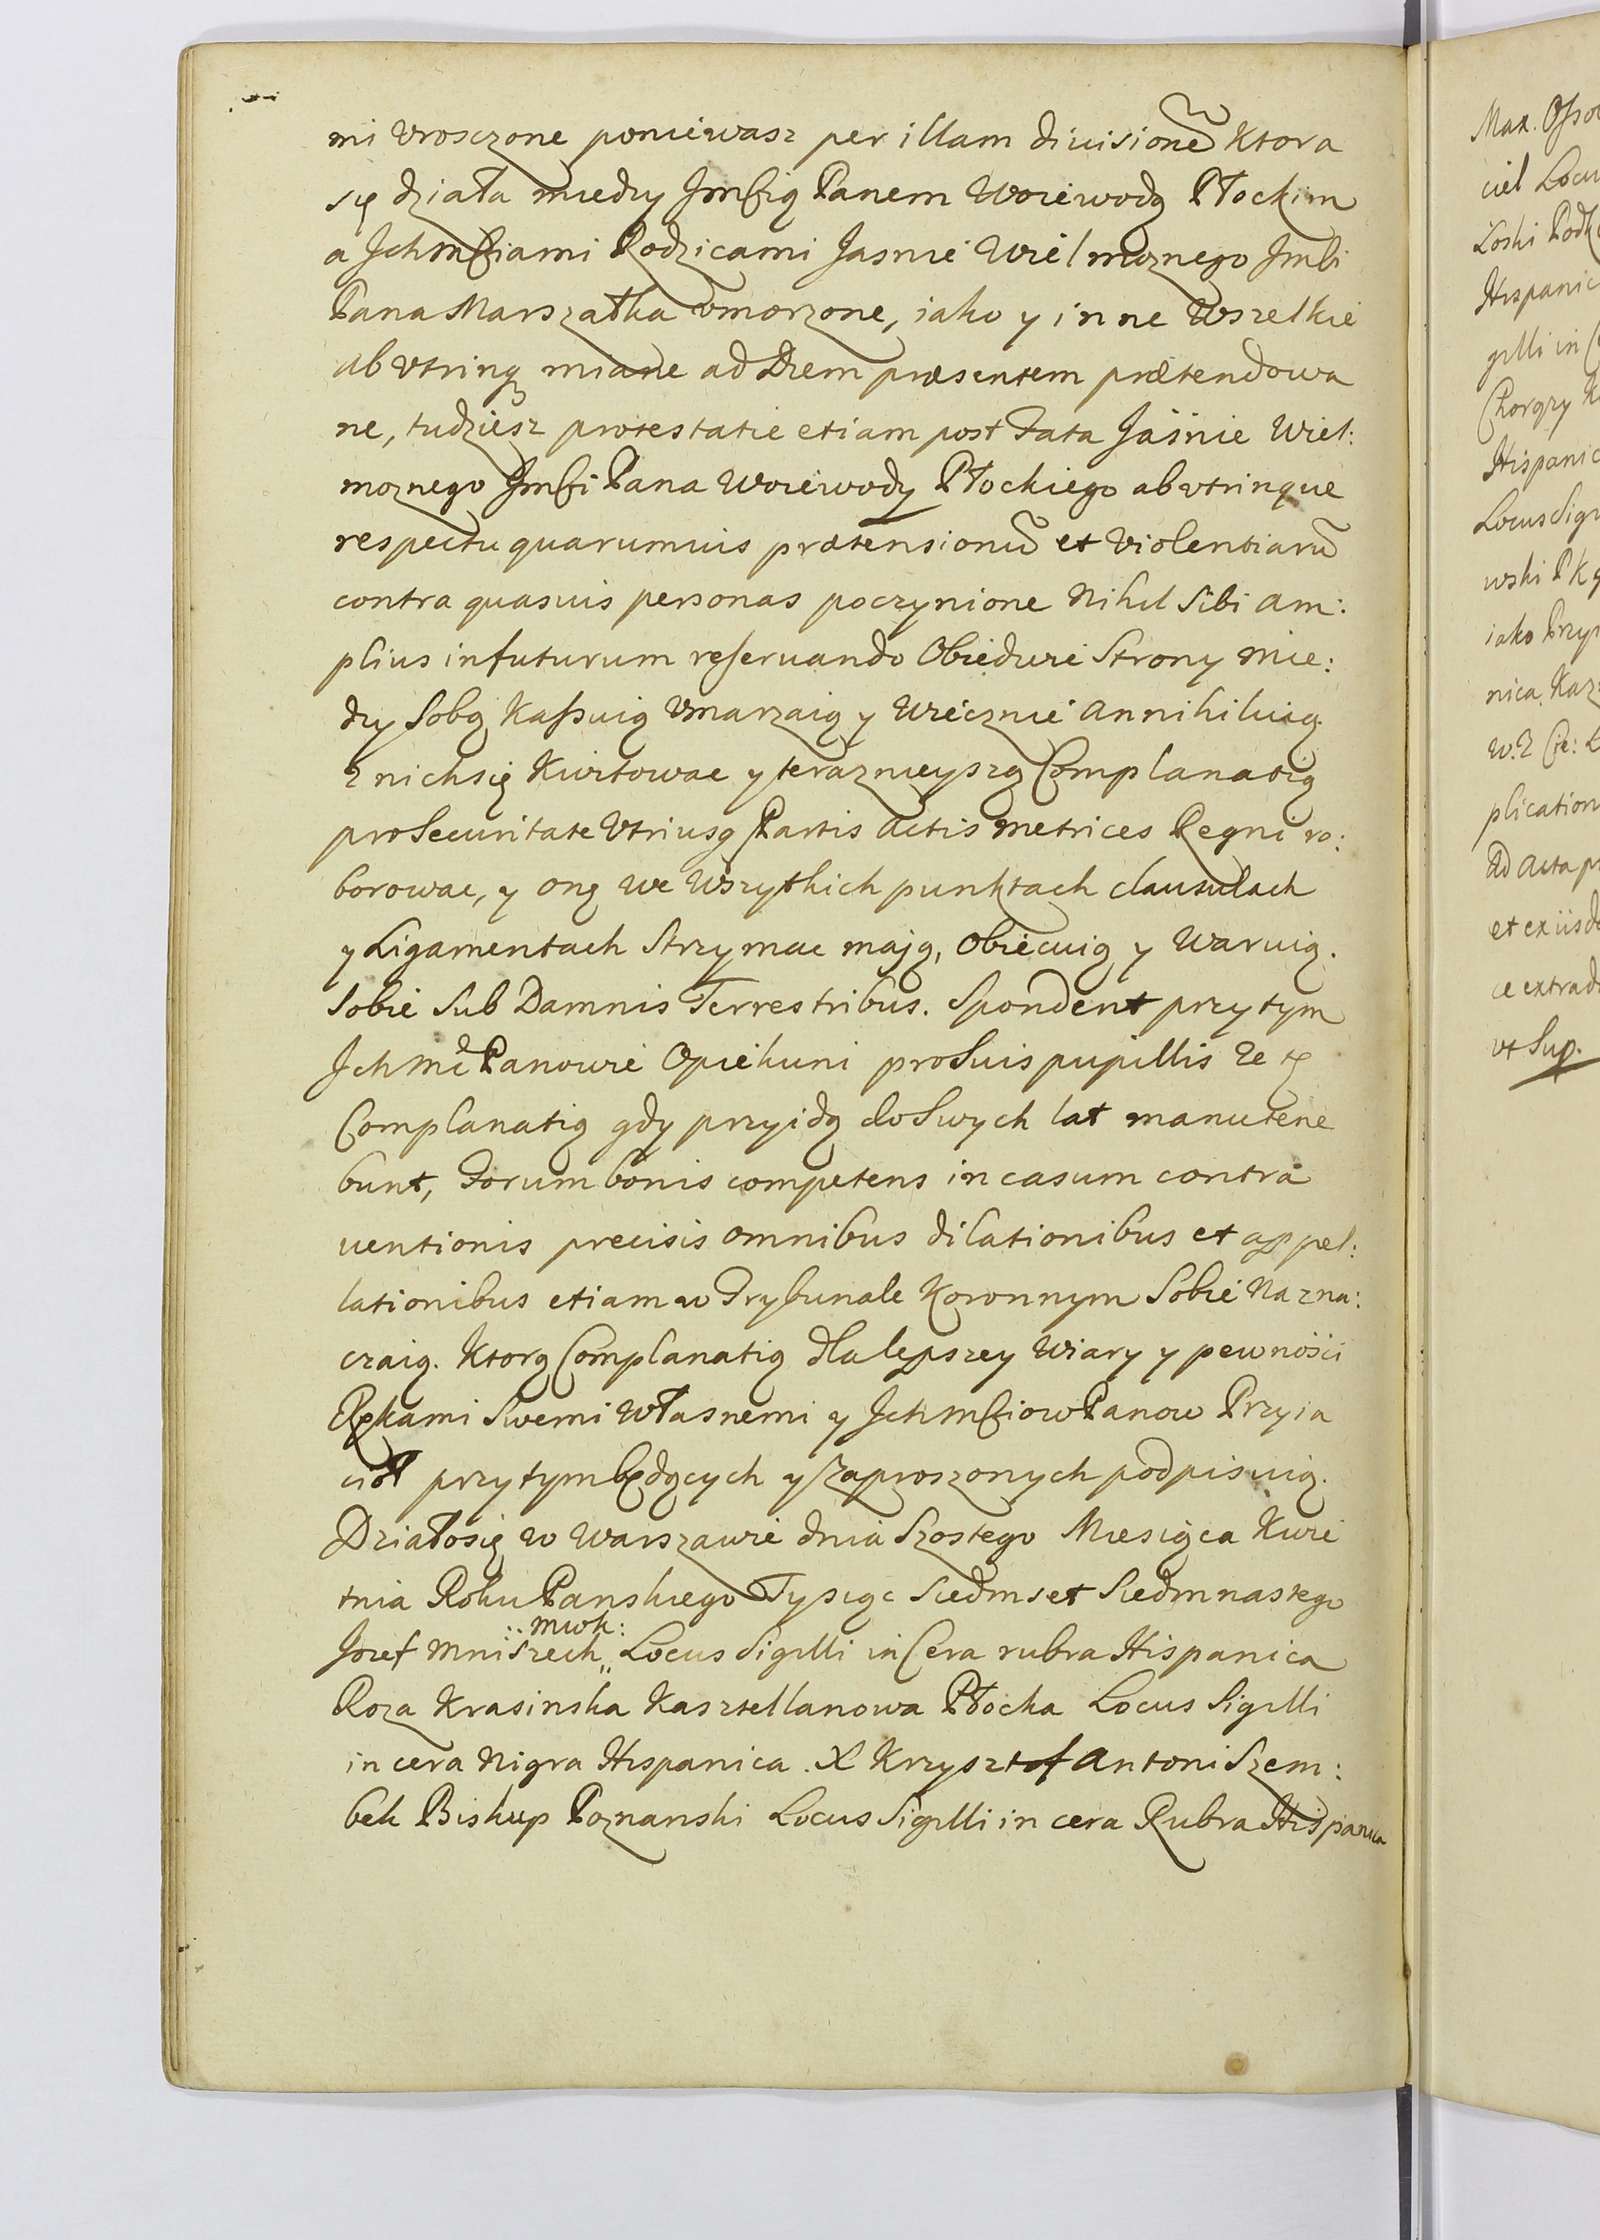 mi Vrosczone poniewasz per illam diuisionē Ktora
się działa miedzy Jmścią Panem Woiewodą Płockim
a Jchmściami Rodzicami Jasnie Wielmoznego Jmści
Pana Marszałka vmorzone, iako y inne Wszelkie
ab vtrinq miane ad Diem præsentem prætendowa
ne, tudziesz protestatie etiam post Fata Jaśnie Wiel:
moznego Jmści Pana Woiewody Płockiego ab vtrinque
respectu quarumuis prætensionū et Violentiarū
contra quasuis personas poczynione Nihil Sibi Am:
plius infuturum reseruando Obiedwie Strony mie:
dzy Sobą Kassuią Vmarzaią y Wiecznie Annihiluią.
z nich się Kwitowac y teraznieyszą Complanatią
pro Securitate Vtriusq Partis Actis Metrices Regni ro:
borowac, y onę we Wszytkich punktach clausulach
y Ligamentach Strzymac mają, Obiecuią y Waruią.
Sobie Sub Damnis Terrestribus. Spondent przytym
Jchmć Panowie Opiekuni pro Suis pupillis ze tę
Complanatią gdy przyidą do Swych lat manutene
bunt, Forum bonis competens in casum contra
uentionis precisis omnibus dilationibus et appel:
lationibus etiam w Trybunale Koronnym Sobie Nazna:
czaią. Ktorą Complanatią dla lepszey Wiary y pewnośći
Rękami Swemi Własnemi y Jchmściow Panow Przyia
ciół przytym będących y zaproszonych podpisuią.
Działo się w Warszawie dnia Szostego Miesiąca Kwie
tnia Roku Panskiego Tysiąc Siedmset Siedmnastego
Jozef Mniszech mwk: Locus Sigilli in Cera rubra Hispanica
Roza Krasinska Kasztellanowa Płocka Locus Sigilli
in cera Nigra Hispanica. X Krzysztof Antoni Szem:
bek Biskup Poznanski Locus Sigilli in cera Rubra Hispanica
Max.
ciel Locu
Łoski Podk
Hispanic
gilli in C
Chorązy K
Hispanic
Locus Sigi
wski P K
iako Przy
nica Kaz
plication
Ad Acta p
et ex iisd
ce extrad
vt Sup.